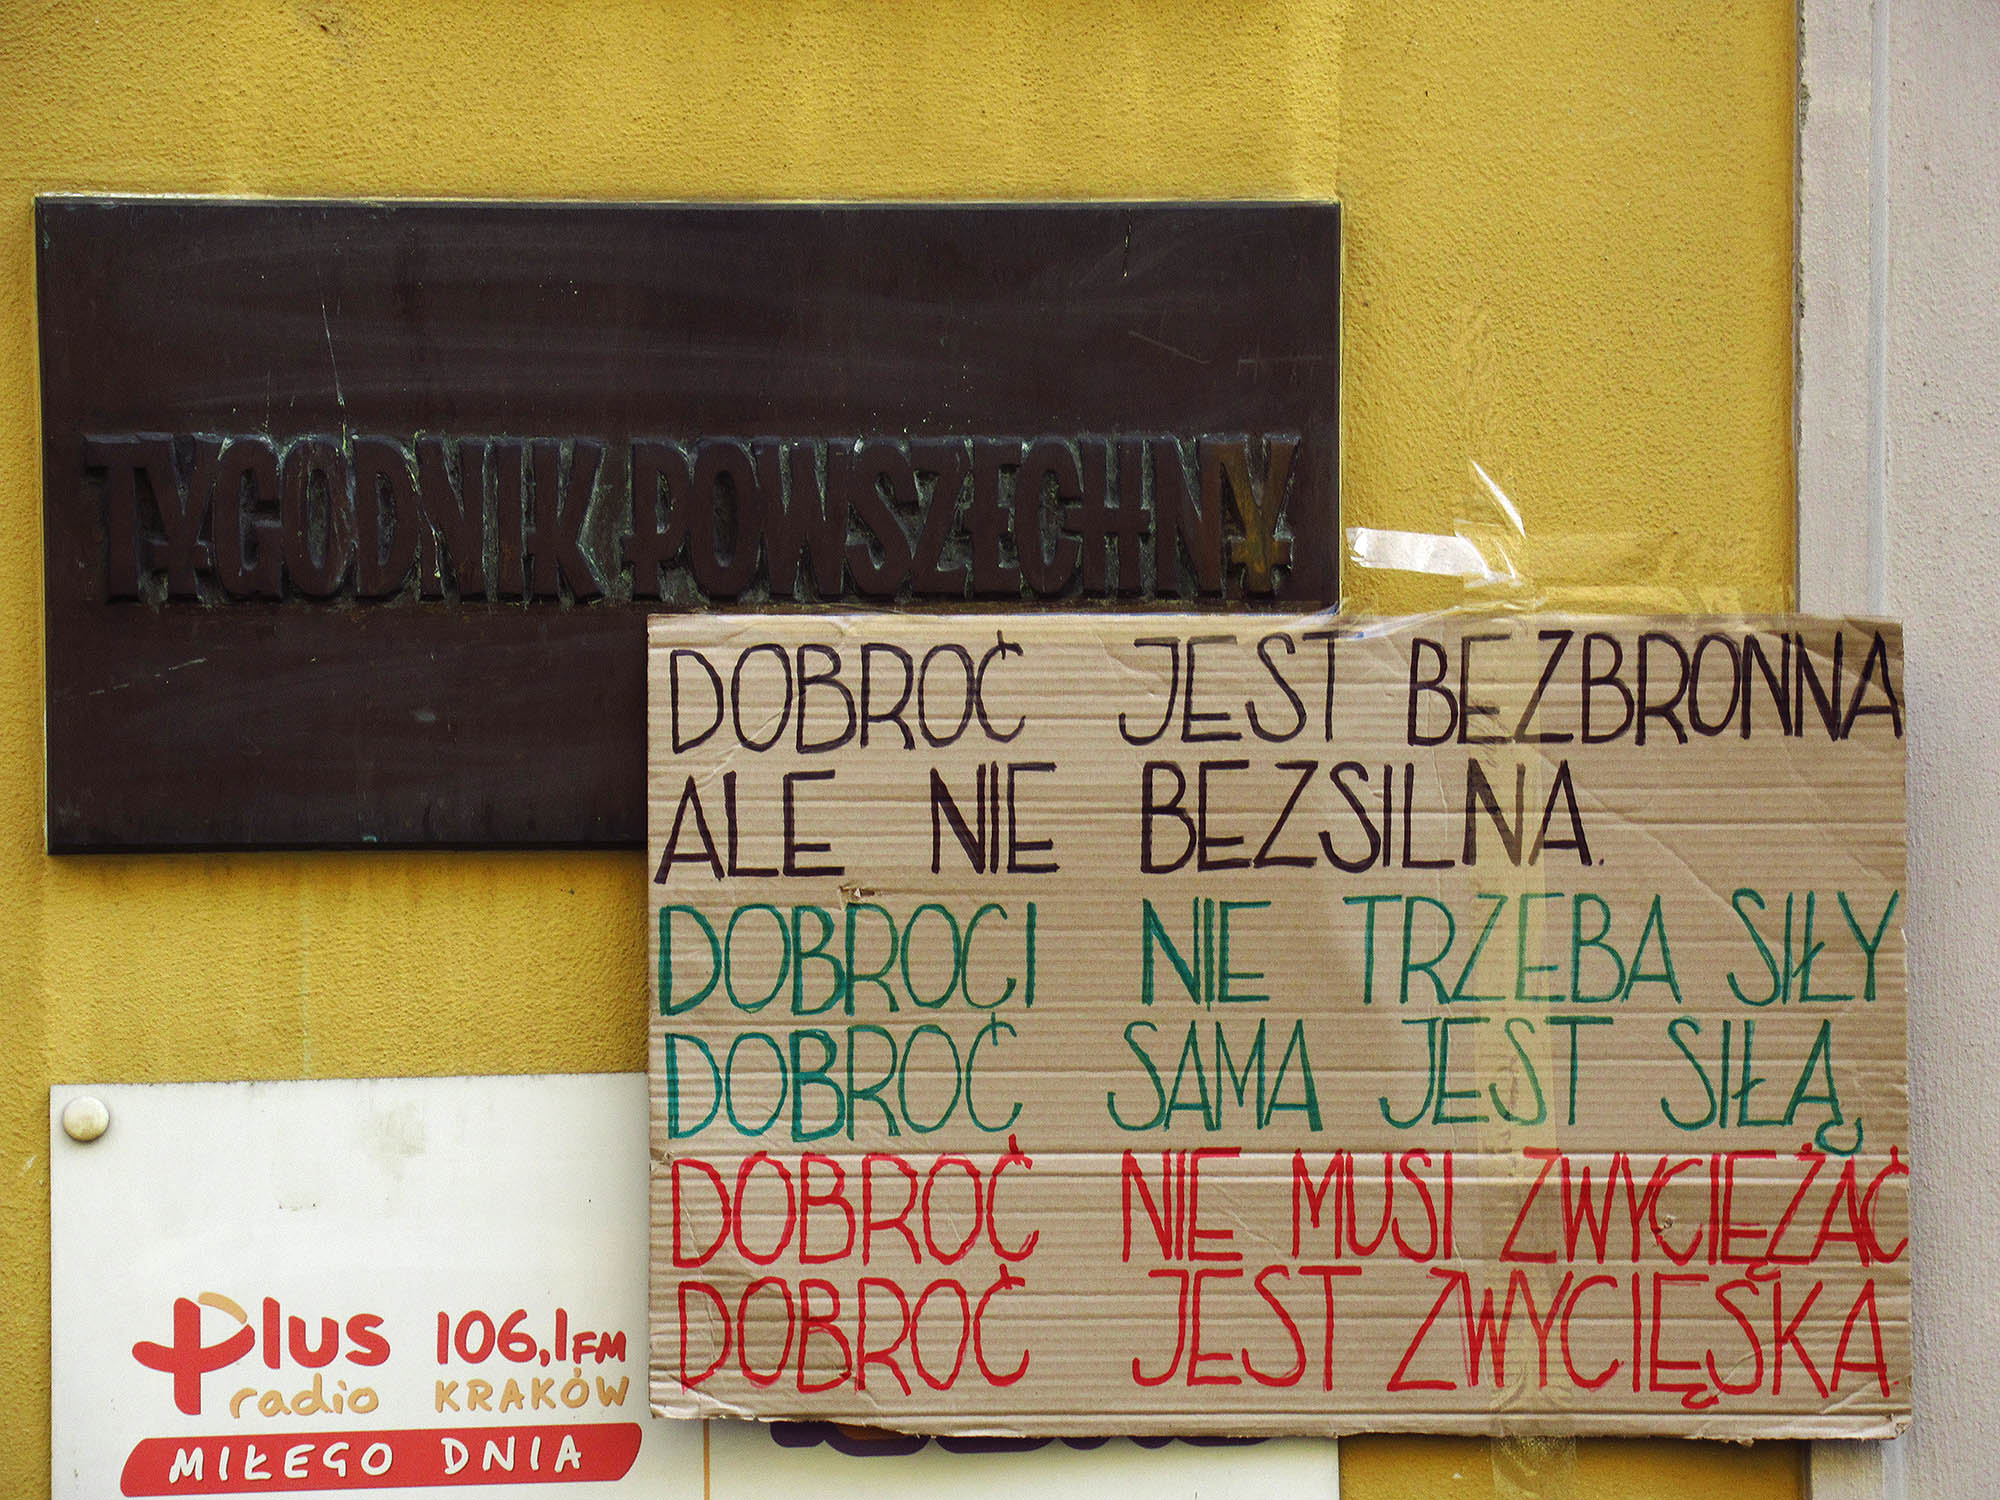 TYGODNIK POWSZECHNY
DOBROĆ JEST BEZBRONNA
ALE NIE BEZSILNA.
DOBROCI NIE TRZEBA SIŁY
DOBROĆ SAMA JEST SIŁĄ
DOBROĆ NIE MUSI ZWYCIĘŻAĆ
DOBROĆ JEST ZWYCIĘSKA.
Plus 106,1 FM
radio KRAKÓW
MIŁEGO DNIA